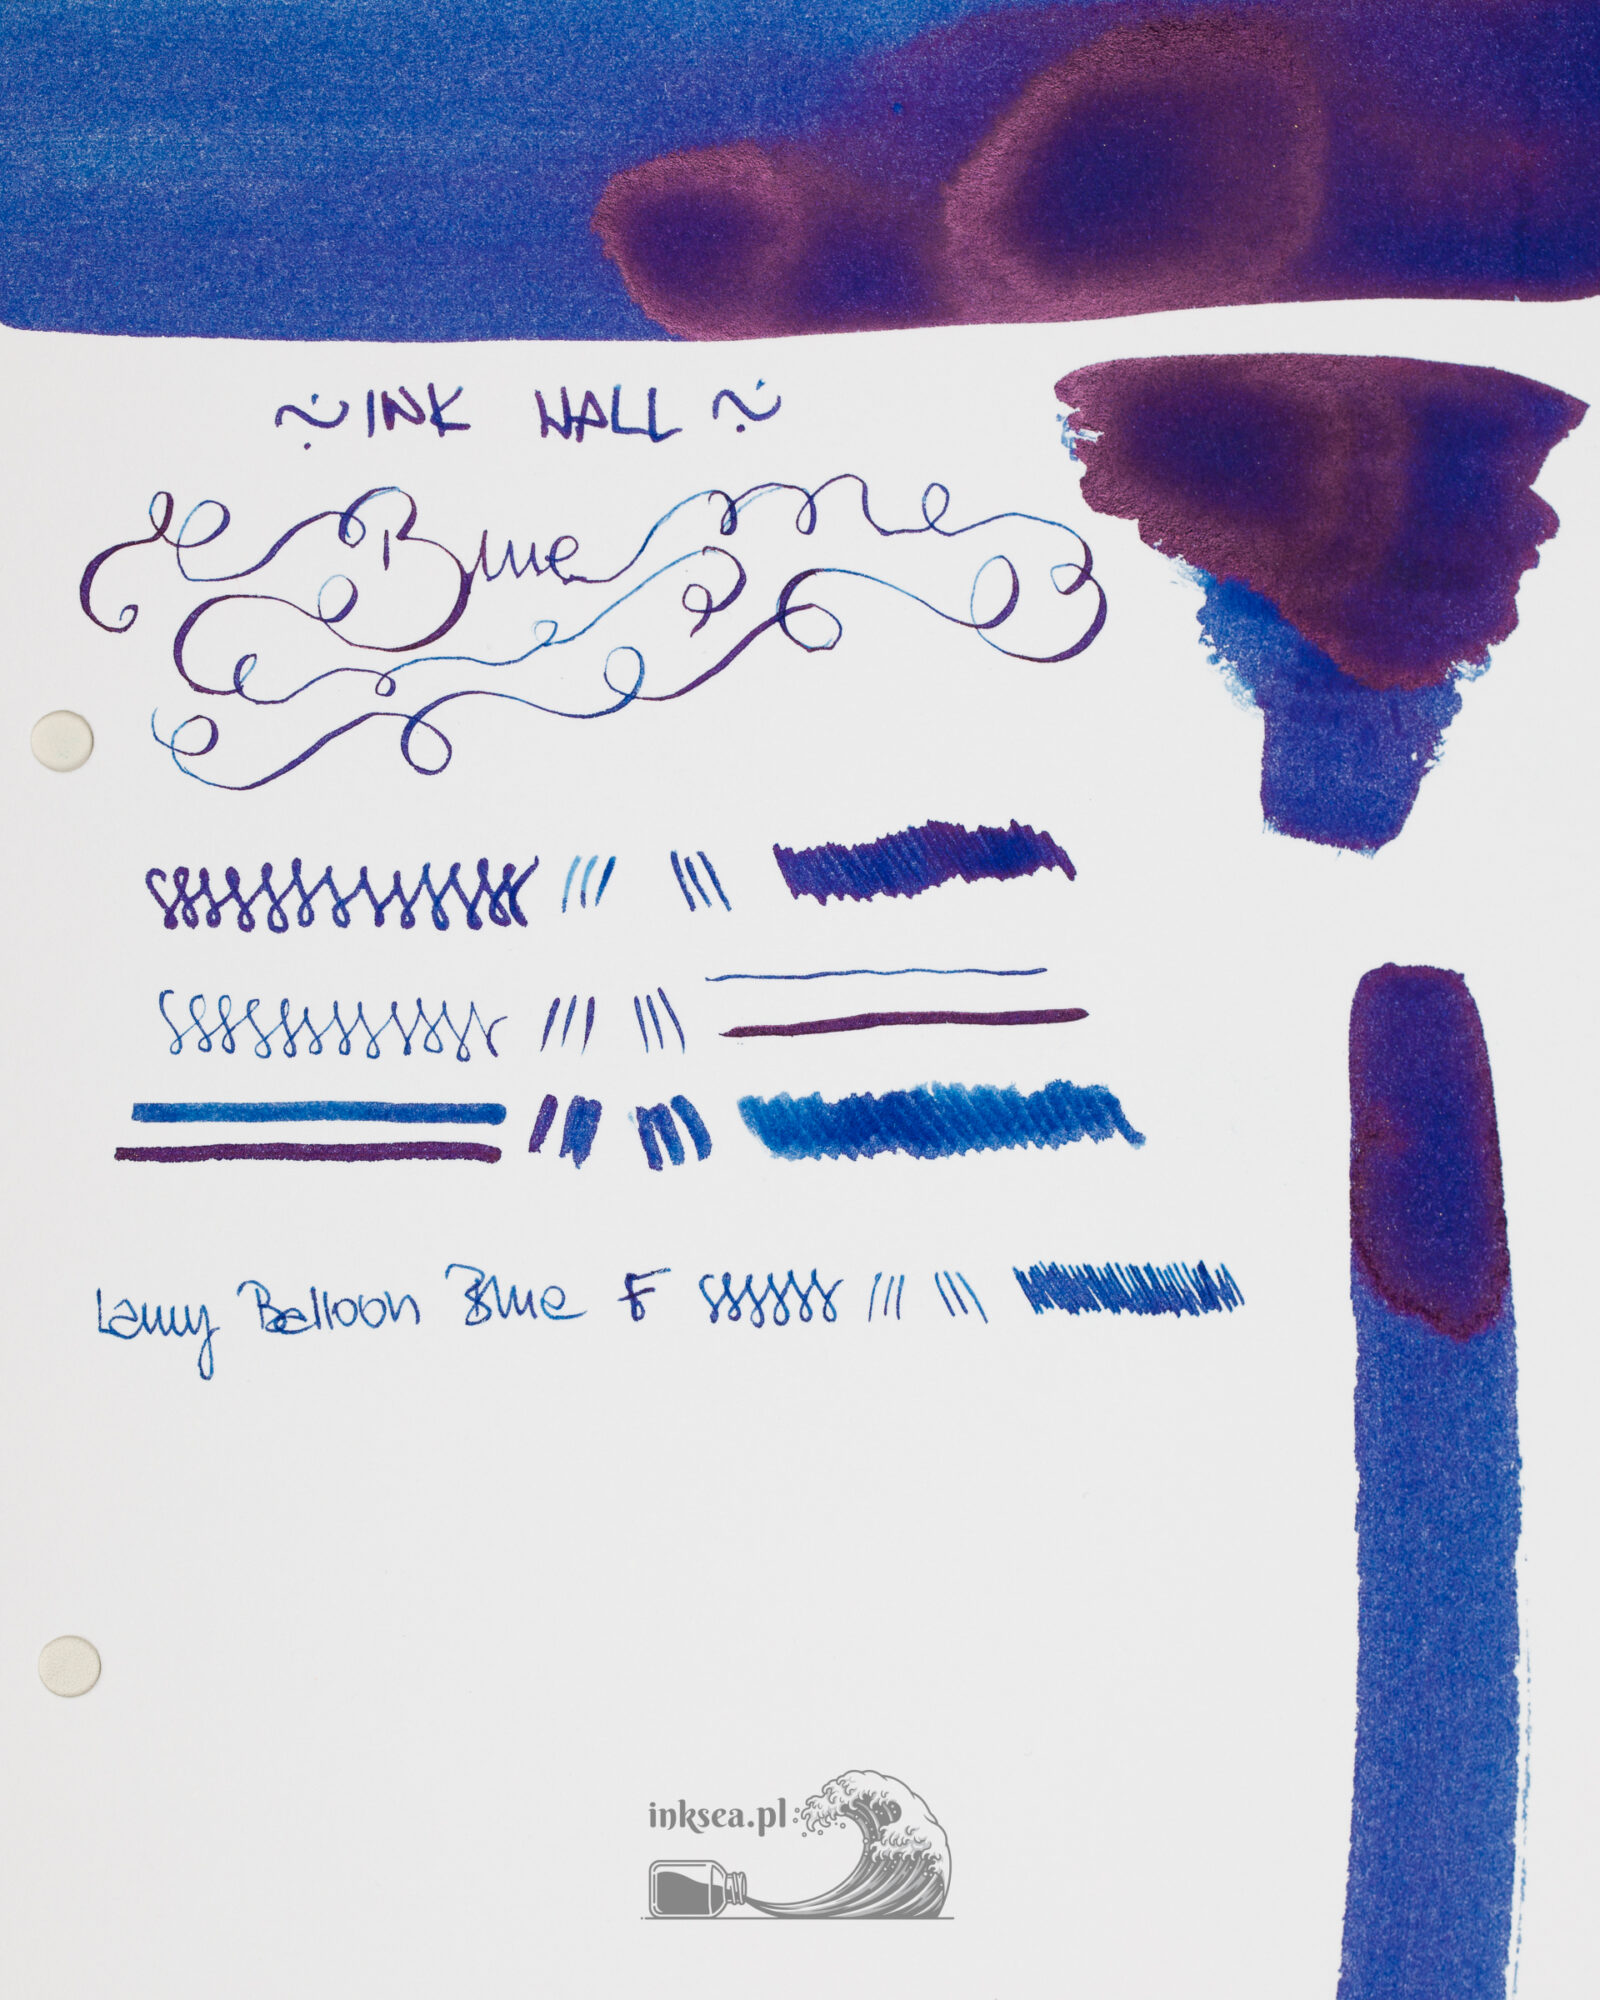 ~ INK WALL ~
Blue Me
Lamy Balloon Blue F
inksea.pl